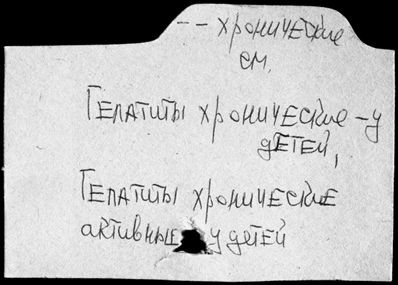 -- хронические
см.
Гепатиты хронические - у
детей,
Гепатиты хронические
активные у детей